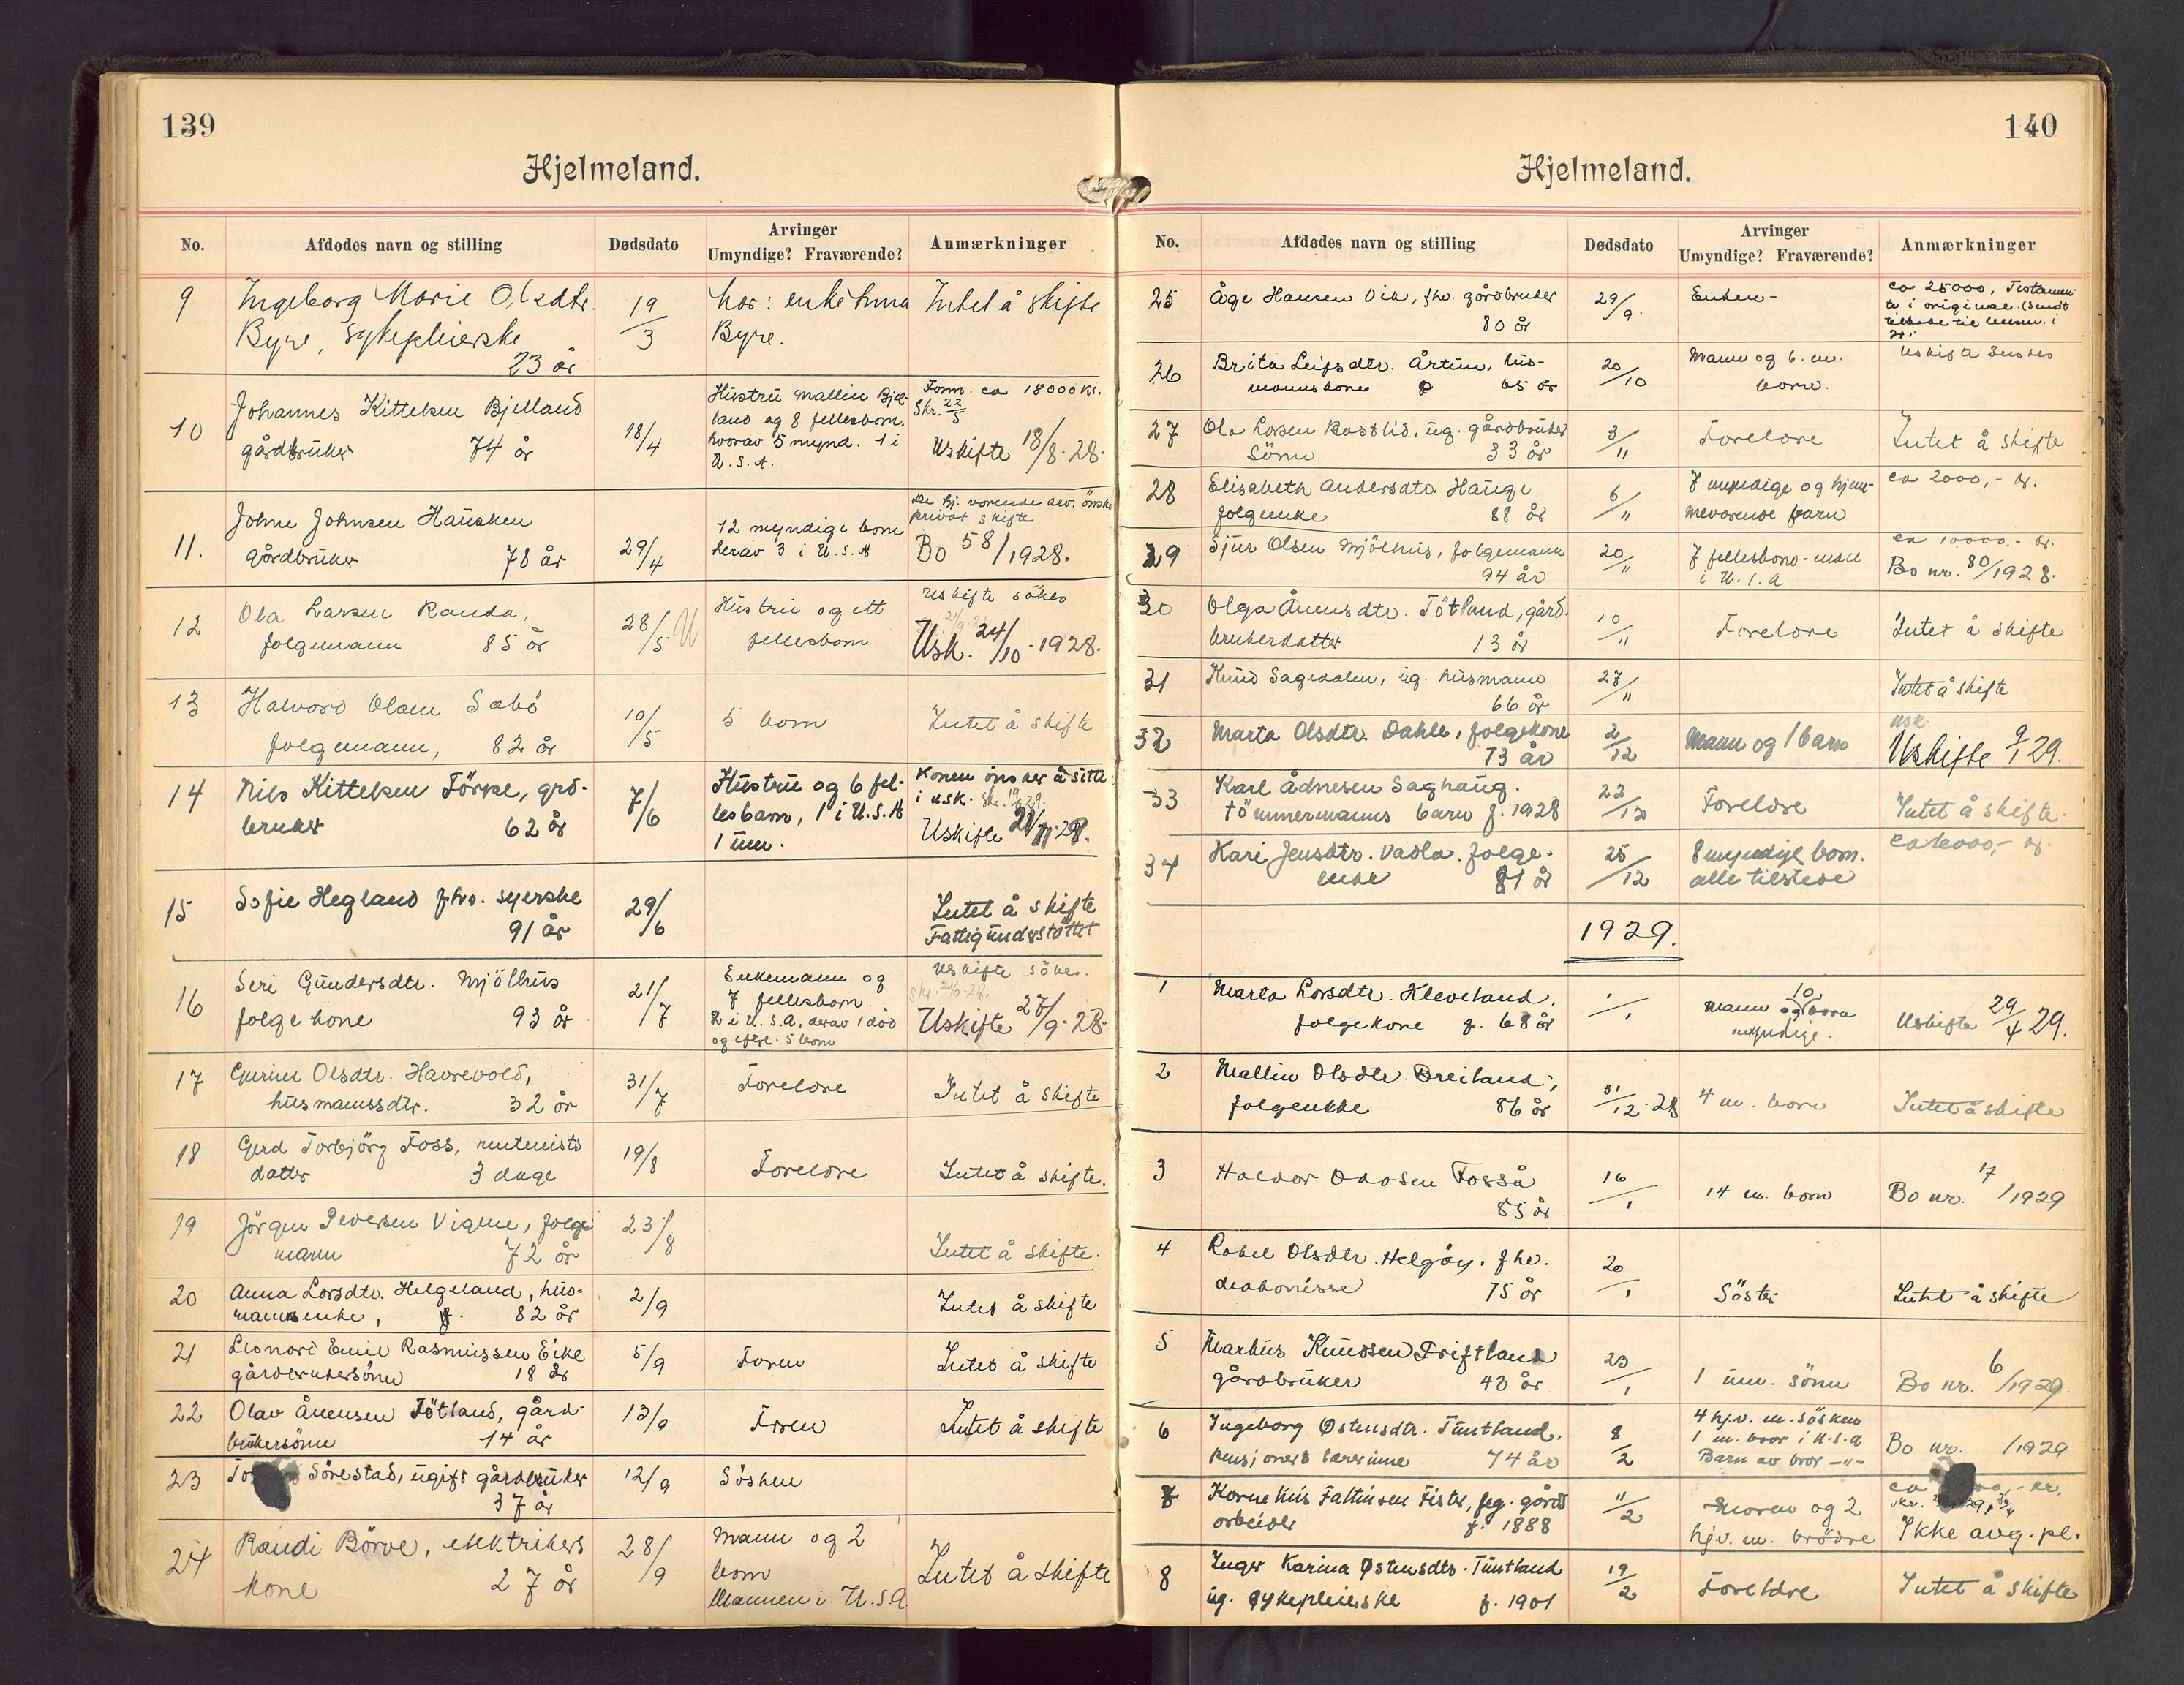 139
Hjelmeland.
No. Afdødes navn og stilling Dødsdato Arvinger Umyndige? Fraværende? Anmærkninger
9 Ingeborg Marie Olsdtr. 19/3 Mor: enke Anna Intet å skifte
Byre, sykepleierske Byre.
23 år
10 Johannes Kittelsen Bjelland 18/4 Hustru Mallin Bjel- Form. ca 18000 kr.
gårdbruker 74 år land og 8 fellesbarn. Skr. 22/5
hvorav 5 mynd. 1 i Uskifte 18/8-28.
U.S.A.
11. Johne Johnsen Hausken 29/4 12 myndige barn De hj. værende arv. ønsker
gårdbruker 78 år herav 3 i U.S.A privat skifte
Bo 58/1928.
12 Ola Larsen Randa, 28/5 U Hustru og ett Uskifte søkes
folgemann 85 år fellesbarn Usk. 24/10-1928.
13 Halvard Olsen Sæbö 10/5 5 barn Intet å skifte
folgemann, 82 år
14 Nils Kittelsen Förre, grd- 7/6 Hustru og 6 fel- Konen ønsker å sitte
bruker 62 år lesbarn, 1 i U.S.A i usk.
1 um. Uskifte
15 Sofie Hegland fhv. syerske 29/6 Intet å skifte
91 år Fattigunderstöttet
16 Seri Gundersdtr. Mjölhus 21/7 Enkemann og Uskifte sökes.
folgekone 93 år 7 fellesbarn.
2 i U.S.A, derav 1 död Uskifte 27/9-28.
og efterl. 5 barn
17 Gurine Olsdtr. Havrevold, 31/7 Foreldre Intet å skifte
husmannsdtr. 32 år
18 Gerd Torbjörg Foss, rutenists 19/8 Foreldre Intet å skifte.
datter 3 dage
19 Jörgen Pedersen Vigne, folge 23/8 Intet å skifte.
mann 72 år
20 Anna Larsdtr. Helgeland, hus- 2/9 Intet å skifte
mannsenke, f. 82 år
21 Leonard Emil Rasmussen Eike 5/9 Foren Intet å skifte
gårdbrukersönn 18 år
22 Olav Ånensen Tötland, gård- 13/9 Foren Intet å skifte
brukersönn 14 år
23 Sörestad, ugift gårdbruker 12/9 Sösken
37 år
24 Randi Börve, elektrikers 28/9 Mann og 2 Intet å skifte
kone 27 år barn
Mannen i U.S.A.
140
Hjelmeland.
No. Afdødes navn og stilling Dødsdato Arvinger Umyndige? Fraværende? Anmærkninger
25 Åge Hansen Vik, fhv. gårdbruker 29/9. Enken- ca 25000, Testamen-
80 år te i original. (Sendt
tilbake til lensm. i
26 Brita Leifsdtr. Årtun, hus- 20/10 Mann og 6. m. Uskifte ønskes
mannskone 65 år barn.
27 Ola Larsen Bastlid, ug. gårdbruker 3/11 Foreldre Intet å skifte
sönn 33 år
28 Elisabeth Andersdtr. Hauge 6/11 7 myndige og hjem- ca 2000,- kr.
folgenke 88 år meværende barn
29 Sjur Olsen Mjölhus, folgemann 20/11 7 fellesbarn ca 10000.- kr.
94 år i U.S.A Bo nr. 80/1928.
30 Olga Ånensdtr. Tötland, gård. 10/11 Foreldre Intet å skifte
brukerdatter 13 år
31 Knud Sagedalen, ug. husmann 27/11 Intet å skifte
66 år
32 Marta Olsdtr. Dahle, folgekone 2/12 Mann og 1 barn Usk.
73 år Uskifte 9/1 29.
33 Karl Ådnesen Saghaug. 22/12 Foreldre Intet å skifte.
tömmermanns barn f. 1928
34 Kari Jensdtr. Vadla. folge- 25/12 8 myndige barn.
enke 81 år alle tilstede
1929.
1 Marta Larsdtr. Kleveland. 1/1 Mann og 10 barn Uskifte 29/4 29.
folgekone f. 68 år myndige.
2 Mallin Olsdtr. Dreiland, 31/12-28 4 m. barn Intet å skifte
folgenke 86 år
3 Haldor Fosså 16/1 14 m. barn Bo nr. 17/1929
85 år
4 Rakel Olsdtr. Helgöy. fhv. 20/1 Söster Intet å skifte
diakonisse 75 år
5 Markus Knudsen Friftland 23/1 1 um. sönn Bo nr. 6/1929.
gårdbruker 43 år
6 Ingeborg Østensdtr. Tuntland. 8/2 4 hj.v. m. sösken Bo nr. /1929
pensjonert lærerinne 74 år 1 m. bror i U.S.A
Barn av bror -"-
7 Kornelius Faltinsen Fister, feg. gårds 11/2 Moren og 2 ca
arbeider f. 1888 hjv. m. brödre Ikke avg. pl.
8 Inger Karina Østensdtr. Tuntland 19/2 Foreldre Intet å skifte
ug. sykepleierske f. 1901